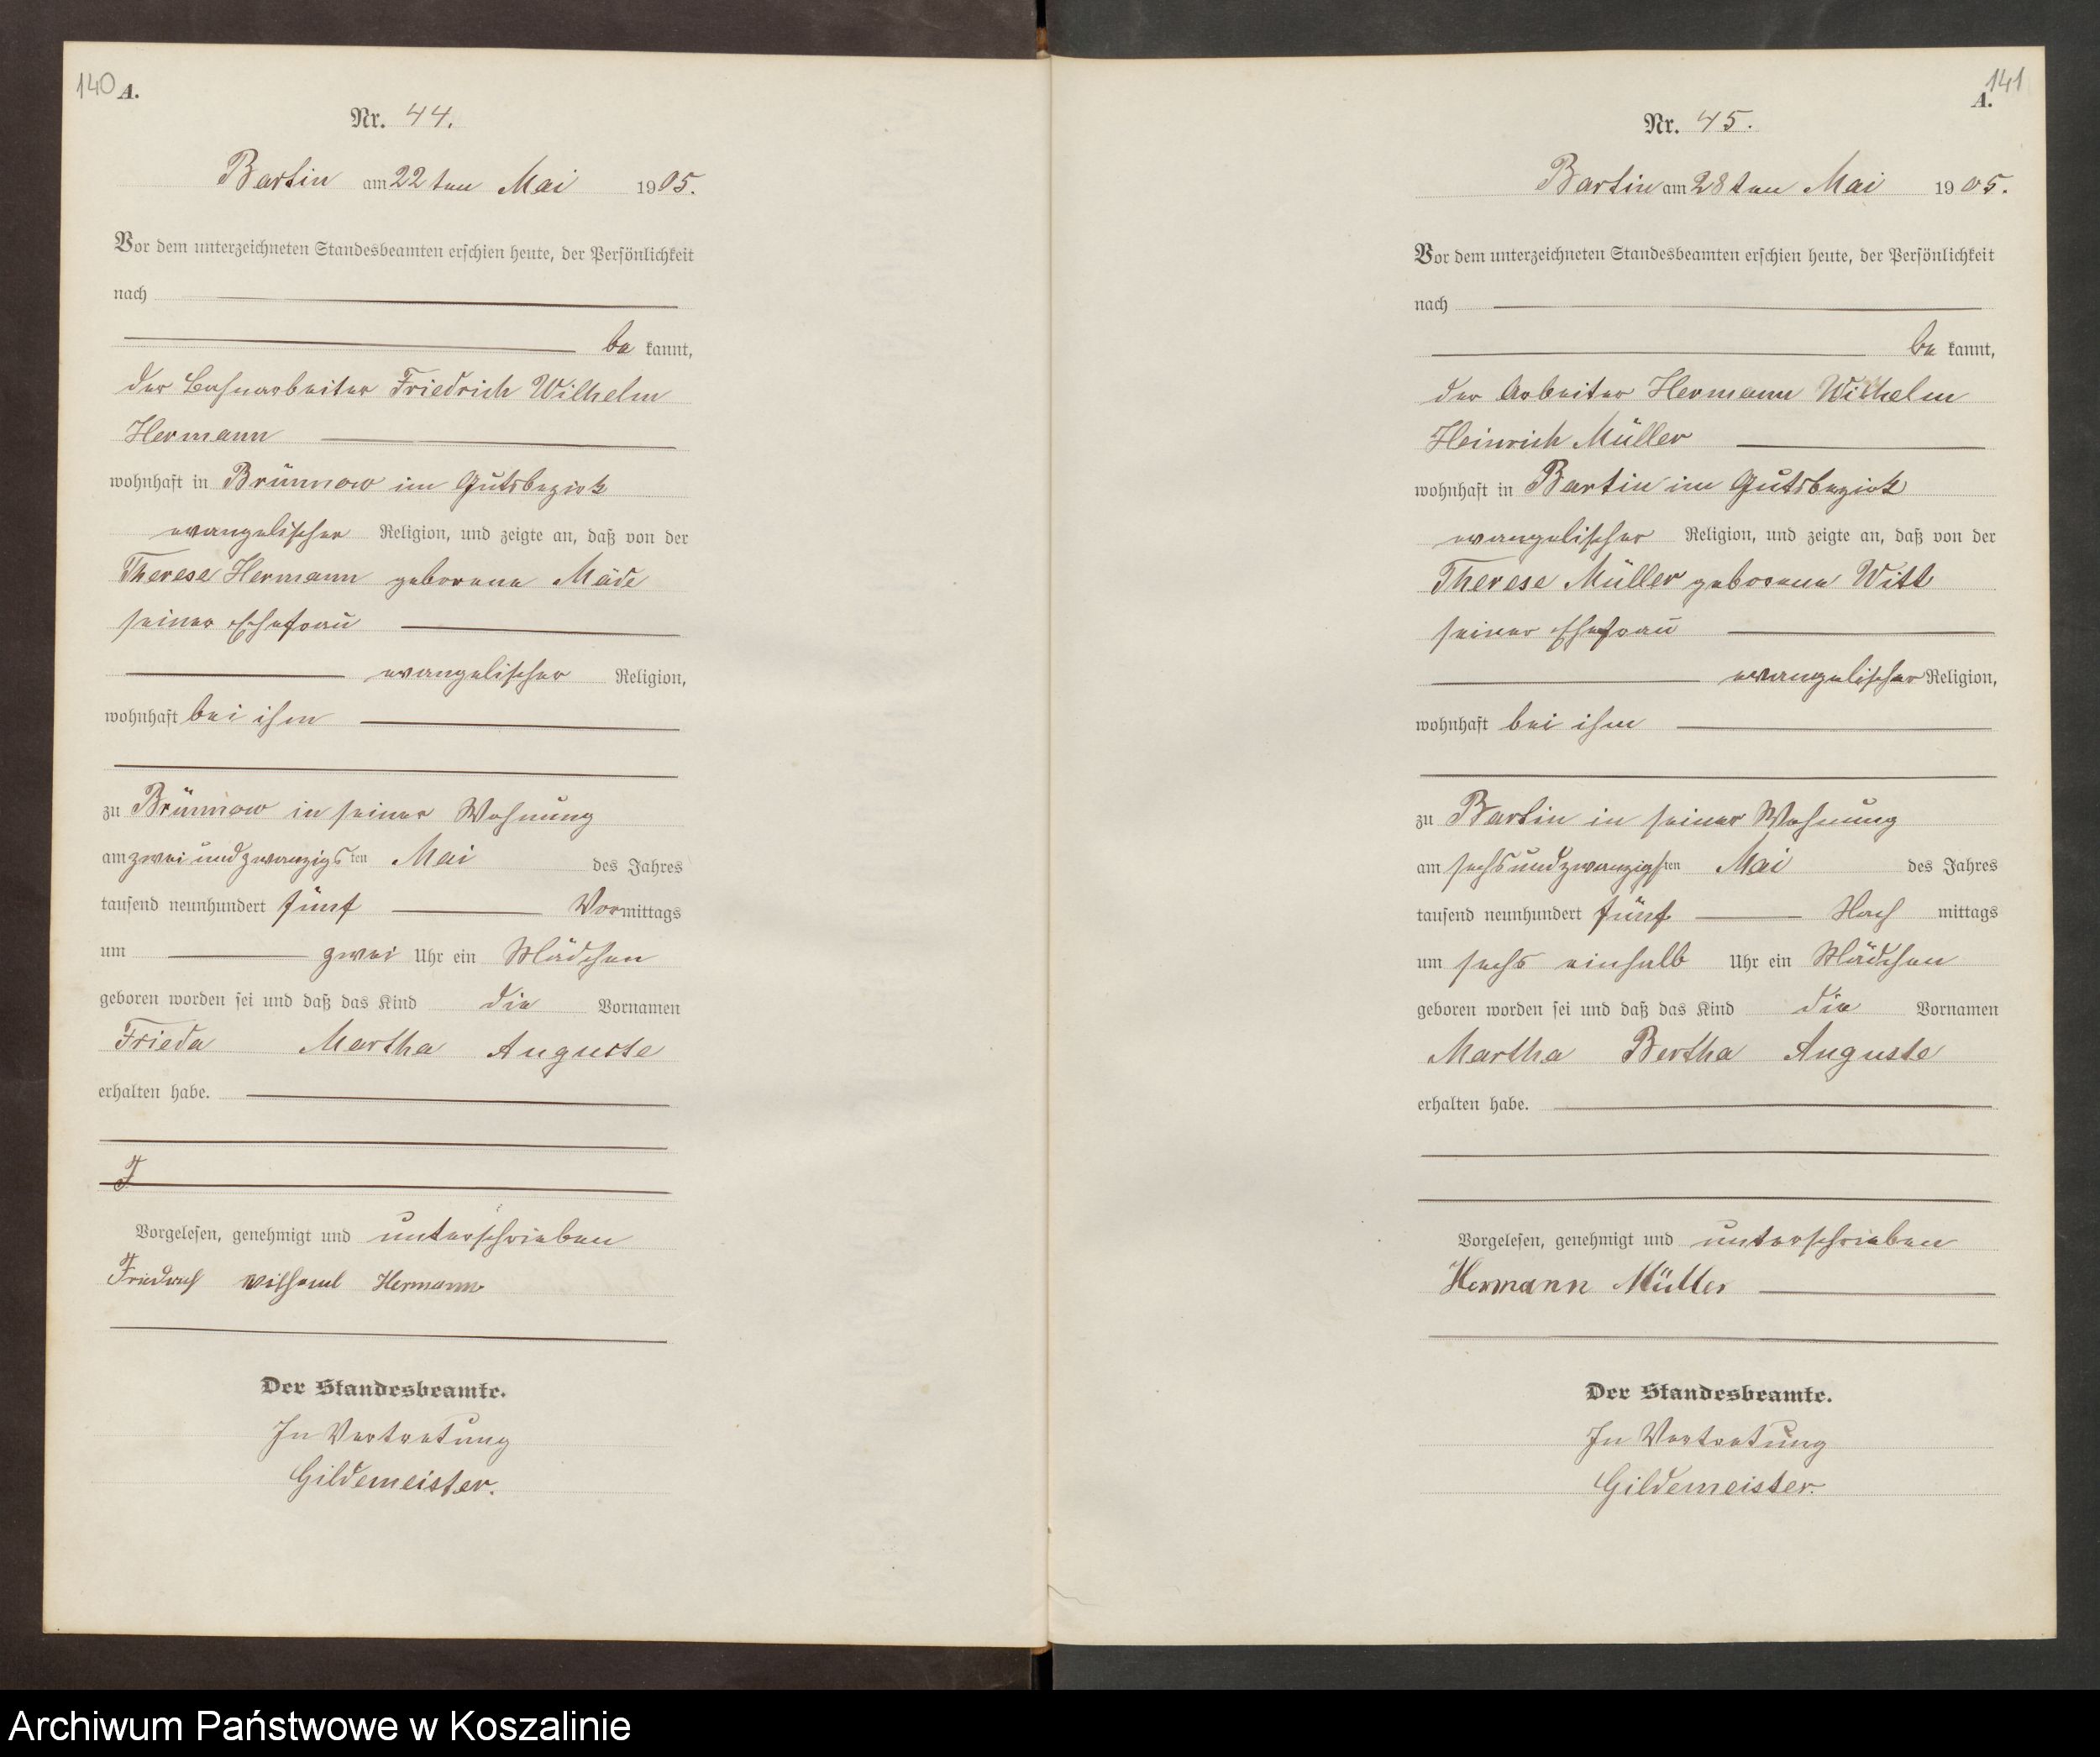 140 A.
Nr. 44.
Bartin am 22ten Mai 1905.
Vor dem unterzeichneten Standesbeamten erschien heute, der Persönlichkeit
nach
be kannt,
der Bahnarbeiter Friedrich Wilhelm
Hermann
wohnhaft in Brünnow im Gutsbezirk
evangelischer Religion, und zeigte an, daß von der
Therese Hermann geborene Mäde
seiner Ehefrau
evangelischer Religion,
wohnhaft bei ihm
zu Brünnow in seiner Wohnung
am zwei und zwanzigsten Mai des Jahres
tausend neunhundert fünf Vormittags
um zwei Uhr ein Mädchen
geboren worden sei und daß das Kind die Vornamen
Frieda Martha Auguste
erhalten habe.
F
Vorgelesen, genehmigt und unterschrieben
Friedrich Hermann
Der Standesbeamte.
In Vertretung
Gildemeister.
141
A.
Nr. 45.
Bartin am 28ten Mai 1905.
Vor dem unterzeichneten Standesbeamten erschien heute, der Persönlichkeit
nach
be kannt,
der Arbeiter Hermann Wilhelm
Heinrich Müller
wohnhaft in Bartin im Gutsbezirk
evangelischer Religion, und zeigte an, daß von der
Therese Müller geborene Witt
seiner Ehefrau
evangelischer Religion,
wohnhaft bei ihm
zu Bartin in seiner Wohnung
am sechsundzwanzigsten Mai des Jahres
tausend neunhundert fünf Nach mittags
um sechs einhalb Uhr ein Mädchen
geboren worden sei und daß das Kind die Vornamen
Martha Bertha Auguste
erhalten habe.
Vorgelesen, genehmigt und unterschrieben
Hermann Müller
Der Standesbeamte.
In Vertretung
Gildemeister.
Archiwum Państwowe w Koszalinie